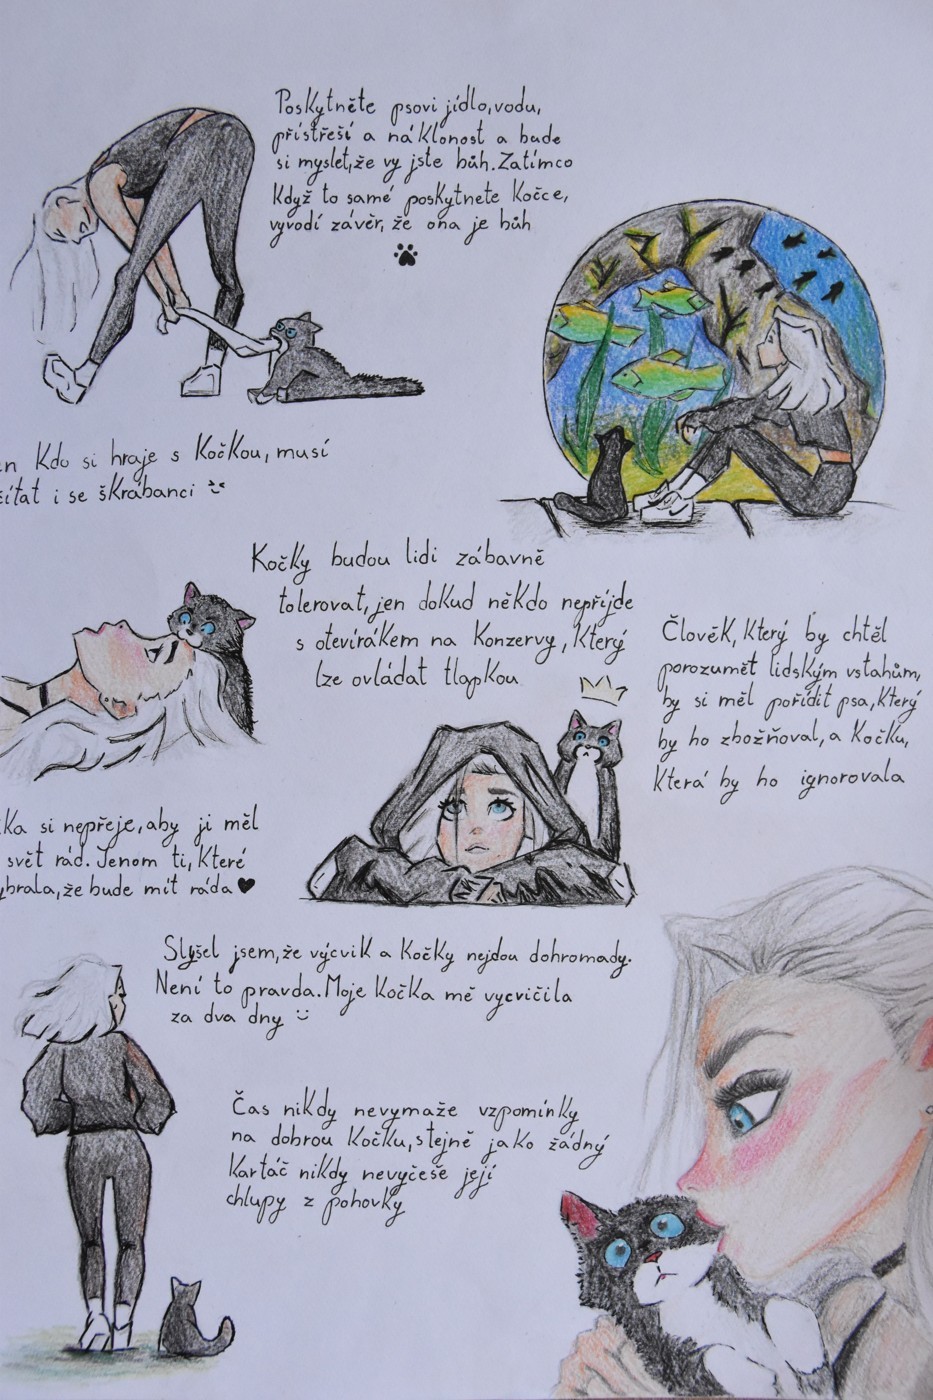 Poskytněte psovi jídlo, vodu,
přístřeší a náklonost a bude
si myslet, že vy jste bůh. Zatímco
když to samé poskytnete kočce,
vyvodí závěr, že ona je bůh
kdo si hraje s kočkou, musí
i se škrábanci
Kočky budou lidi zábavně
tolerovat, jen dokud někdo nepřijde
s otevírákem na konzervy, který
lze ovládat tlapkou
Člověk, který by chtěl
porozumět lidským vstahům,
by si měl pořídit psa, který
by ho zbožňoval, a kočku,
která by ho ignorovala
si nepřeje, aby ji měl
svět rád. Jenom ti, které
že bude mít ráda
Slyšel jsem, že výcvik a kočky nejdou dohromady.
Není to pravda. Moje kočka mě vycvičila
za dva dny
Čas nikdy nevymaže vzpomínky
na dobrou kočku, stejně jako žádný
kartáč nikdy nevyčeše její
chlupy z pohovky